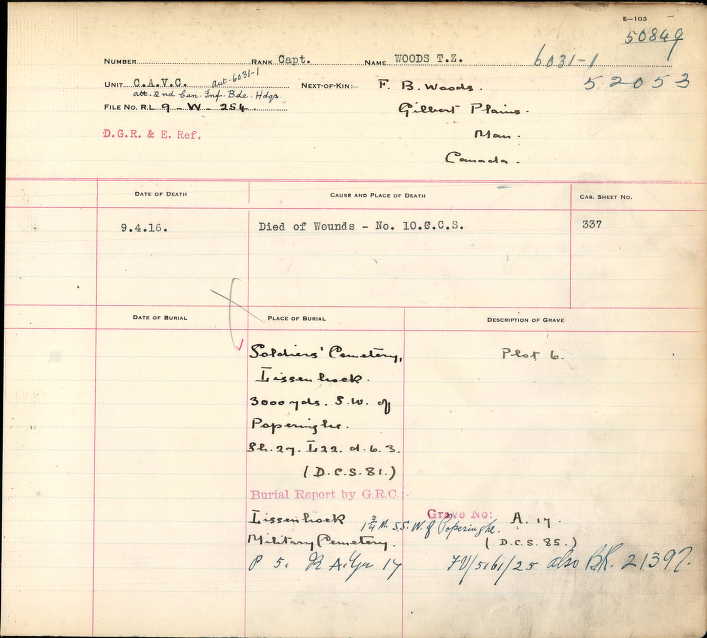 E—103
50849
NUMBER RANK Capt. NAME WOODS T.Z. 6031-1
UNIT C.A.V.C. aut-6031-1 NEXT-OF-KIN:- F. B. Woods. 52053
att. 2nd Can. Inf. Bde. Hdqs.
FILE NO. R.L 9 - W - 254. Gilbert Plains.
D.G.R. & E. Ref. Man.
Canada.
DATE OF DEATH CAUSE AND PLACE OF DEATH CAS. SHEET NO.
9.4.16. Died of Wounds - No. 10.C.C.S. 337
DATE OF BURIAL PLACE OF BURIAL DESCRIPTION OF GRAVE
Soldiers' Cemetery, Plot 6.
Lissenhoek.
3000 yds. S.W. of
Poperinghe.
Sh. 27. L22. d. 6. 3.
(D.C.S. 81.)
Burial Report by G.R.C.:-
Grave No: A. 17.
Lissenhoek 1¾ m. S.S.W. of Poperinghe.
Military Cemetery. (D.C.S. 85.)
P 5. R A. Gr 17 IV/5161/25 also BR. 21397.